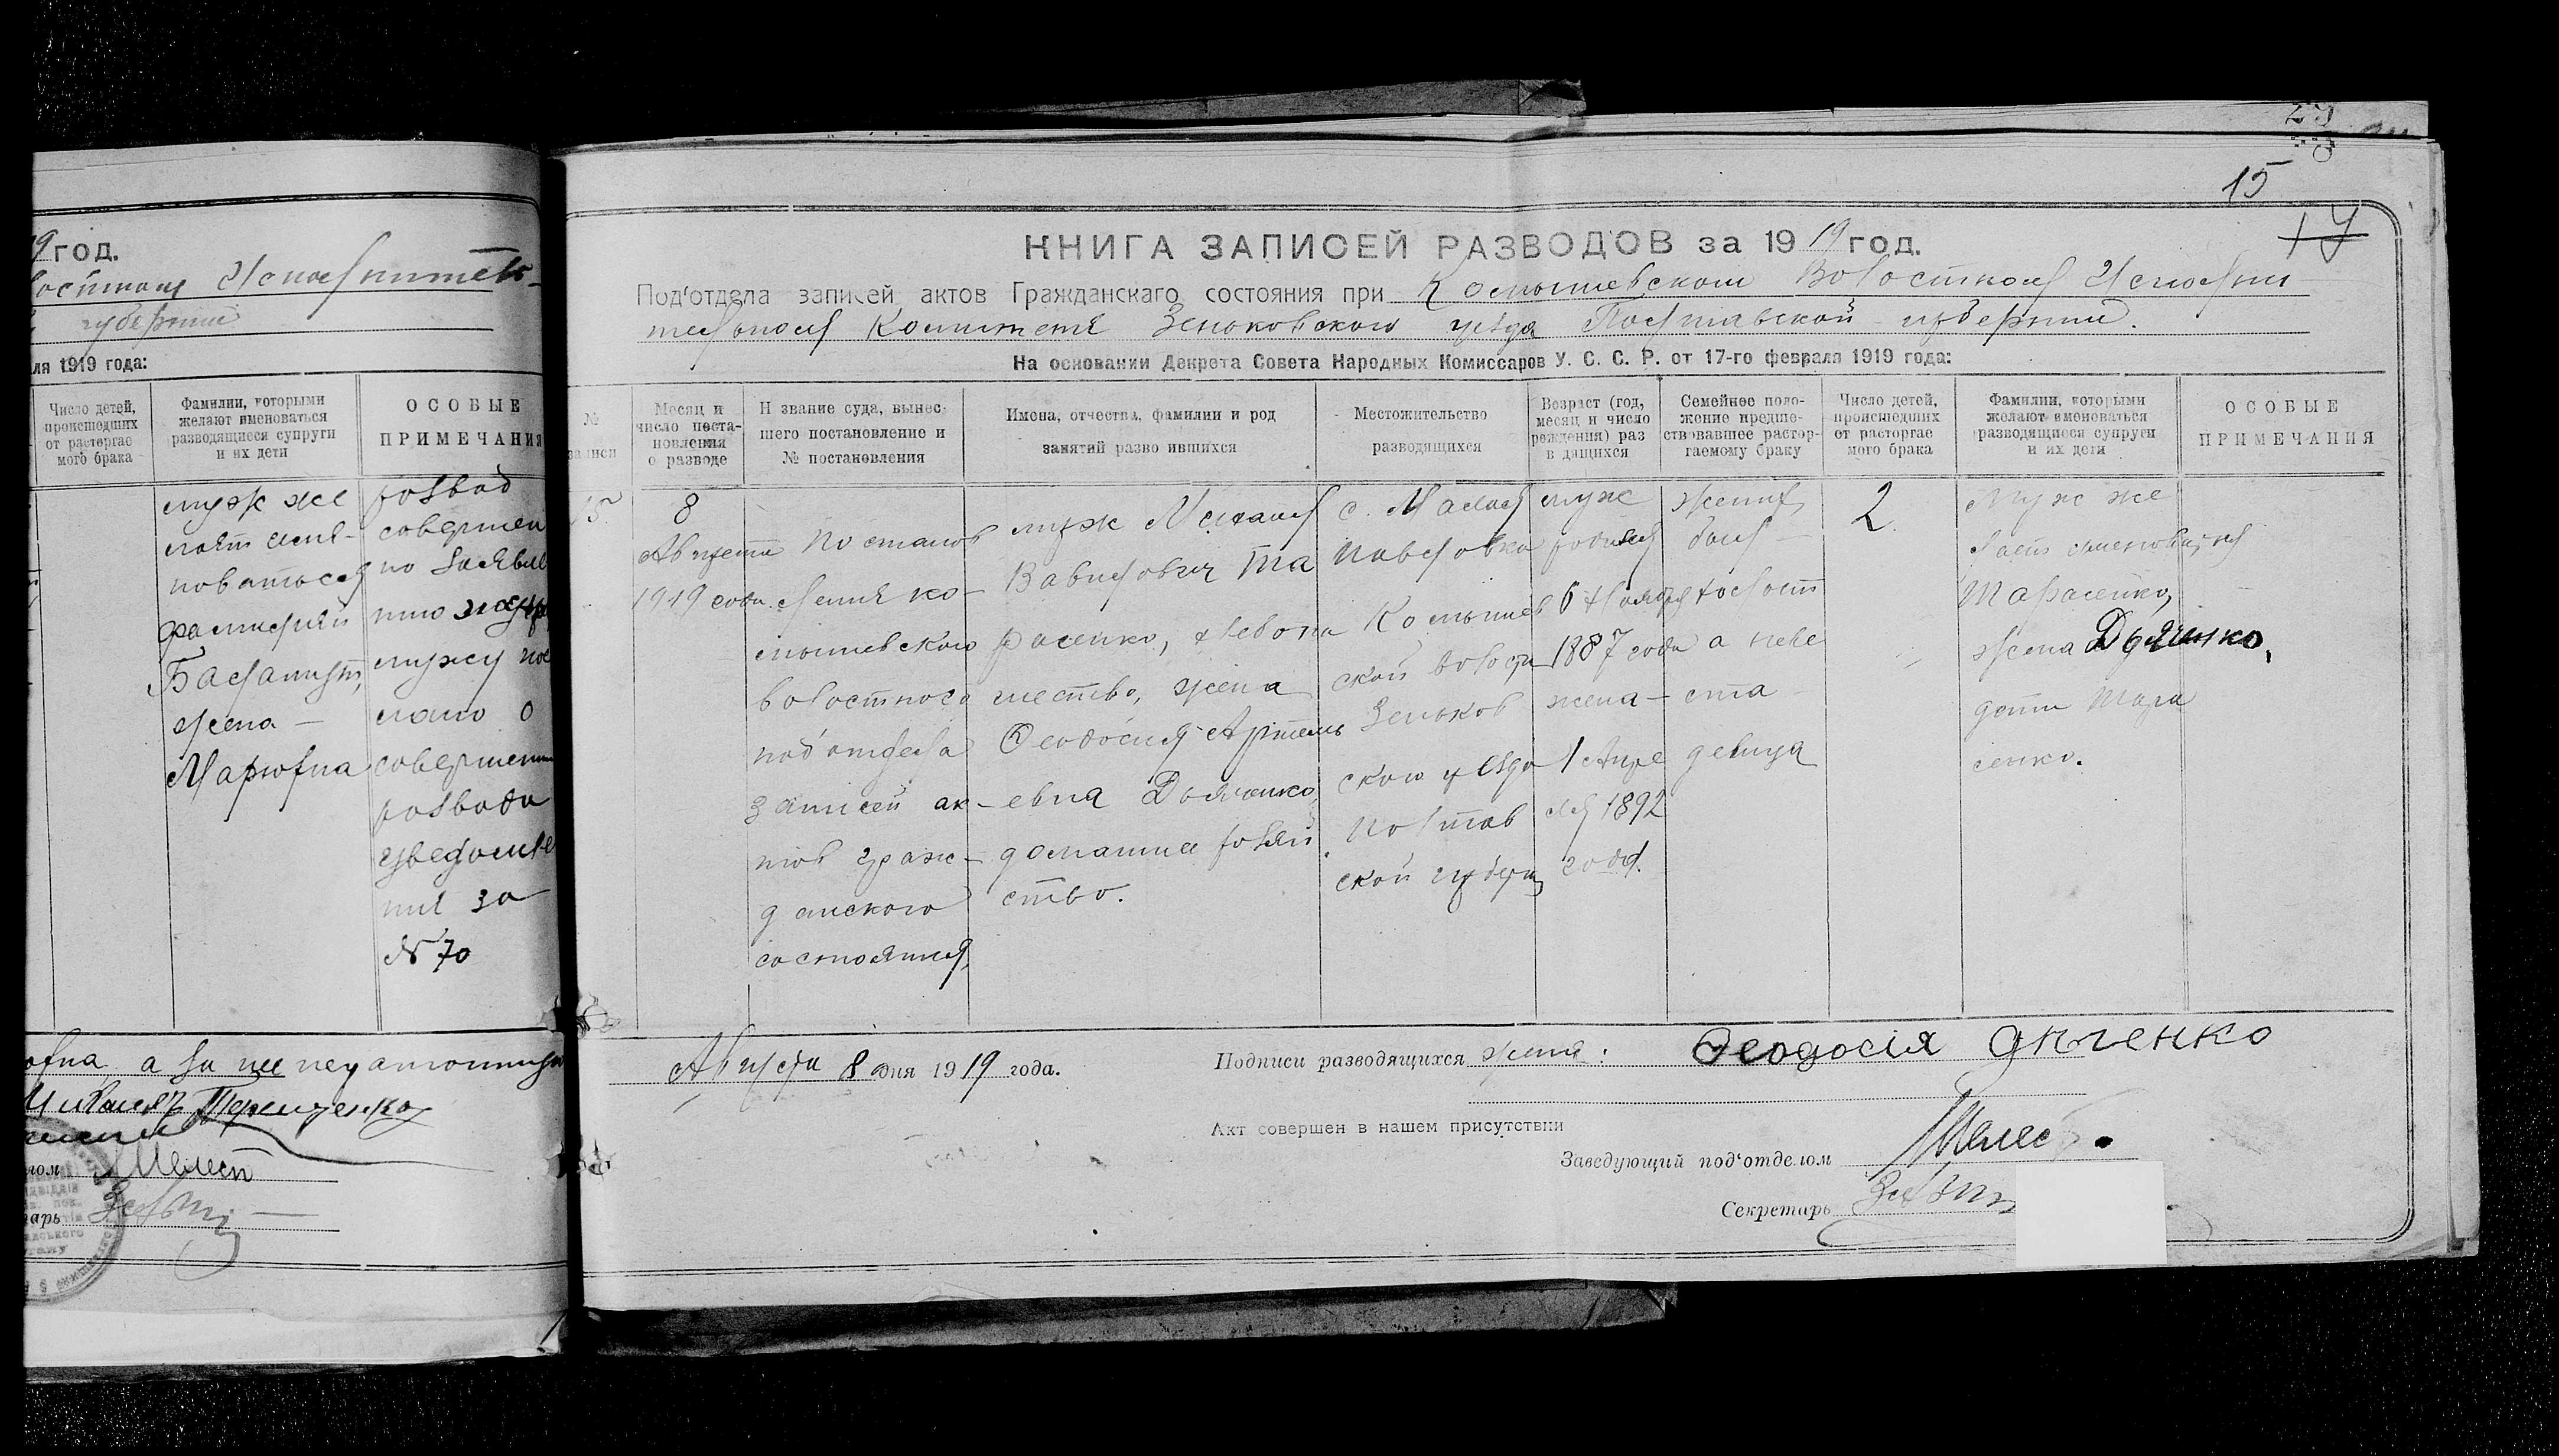 9 год.
губернии
ля 1919 года:
Число детей,
происшедших
от расторгае
мого брака
Фамилии, которыми
желают именоваться
разводящиеся супруги
и их дети
ОСОБЫЕ
ПРИМЕЧАНИЯ
муж же
лает име-
новаться
фамилией
жена —
развод
совершен
по заявле
нию
мужу пос
лано о
совершении
развода
уведомле
ние за
№ 70
а за нее неграмотную
Терещенко
Шелест
15
17
КНИГА ЗАПИСЕЙ РАЗВОДОВ за 1919 год.
Под'отдела записей актов Гражданскаго состояния при Комышевском Волостном Исполни
тельном Комитете Зеньковского уезда Полтавской губернии.
На основании Декрета Совета Народных Комиссаров У. С. С. Р. от 17-го февраля 1919 года:
№
записи
Месяц и
число поста-
новления
о разводе
Н звание суда, вынес-
шего постановление и
№ постановления
Имена, отчества, фамилии и род
занятий разво ившихся
Местожительство
разводящихся
Возраст (год,
месяц и число
рождения) раз
в дящихся
Семейное поло-
жение предше-
ствовавшее растор-
гаемому браку
Число детей,
происшедших
от расторгае
мого брака
Фамилии, которыми
желают именоваться
разводящиеся супруги
и их дети
ОСОБЫЕ
ПРИМЕЧАНИЯ
15.
8
Августа
1919 года.
Постанов
ление Ко-
мышевского
волостного
под'отдела
записей ак-
тов граж-
данского
состояния,
муж Михаил
Вавилович Та
расенко,
жена
Феодосия Артемь
евна Дьяченко,
домашнее хозяй
ство.
с. Малая
Павловка
Комышев
ской волости
Зеньков
ского уезда
Полтав
ской губерн
муж
родился
6 Ноября
1887 года
жена —
1 Апре
ля 1892
года.
жених
был
холост
а неве
ста
девица
2.
Муж же
лает именоваться
Тарасенко,
жена Дьяченко,
дети Тара
сенко.
Августа 8 дня 1919 года.
Подписи разводящихся жена: Феодосія Дяченко
Акт совершен в нашем присутствии
Заведующий под'отделом Шелест
Секретарь